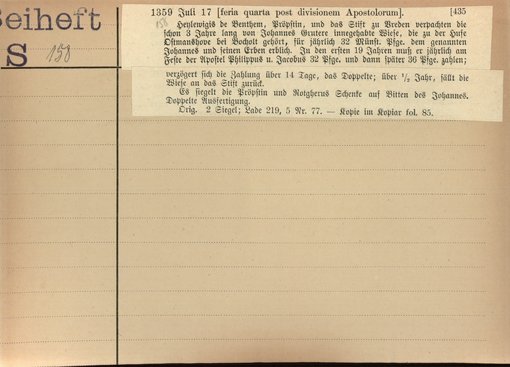 Beiheft
S 158
1359 Juli 17 [feria quarta post divisionem Apostolorum]. [435
158
Heylewigis de Benthem, Pröpstin, und das Stift zu Vreden verpachten die
schon 3 Jahre lang von Johannes Grutere innegehabte Wiese, die zu der Hufe
Ostmanshove bei Bocholt gehört, für jährlich 32 Münst. Pfge. dem genannten
Johannes und seinen Erben erblich. In den ersten 19 Jahren muß er jährlich am
Feste der Apostel Philippus u. Jacobus 32 Pfge. und dann später 36 Pfge. zahlen;
verzögert sich die Zahlung über 14 Tage, das Doppelte; über 1/2 Jahr, fällt die
Wiese an das Stift zurück.
Es siegelt die Pröpstin und Rotgherus Schenke auf Bitten des Johannes.
Doppelte Ausfertigung.
Orig. 2 Siegel; Lade 219, 5 Nr. 77. — Kopie im Kopiar fol. 85.